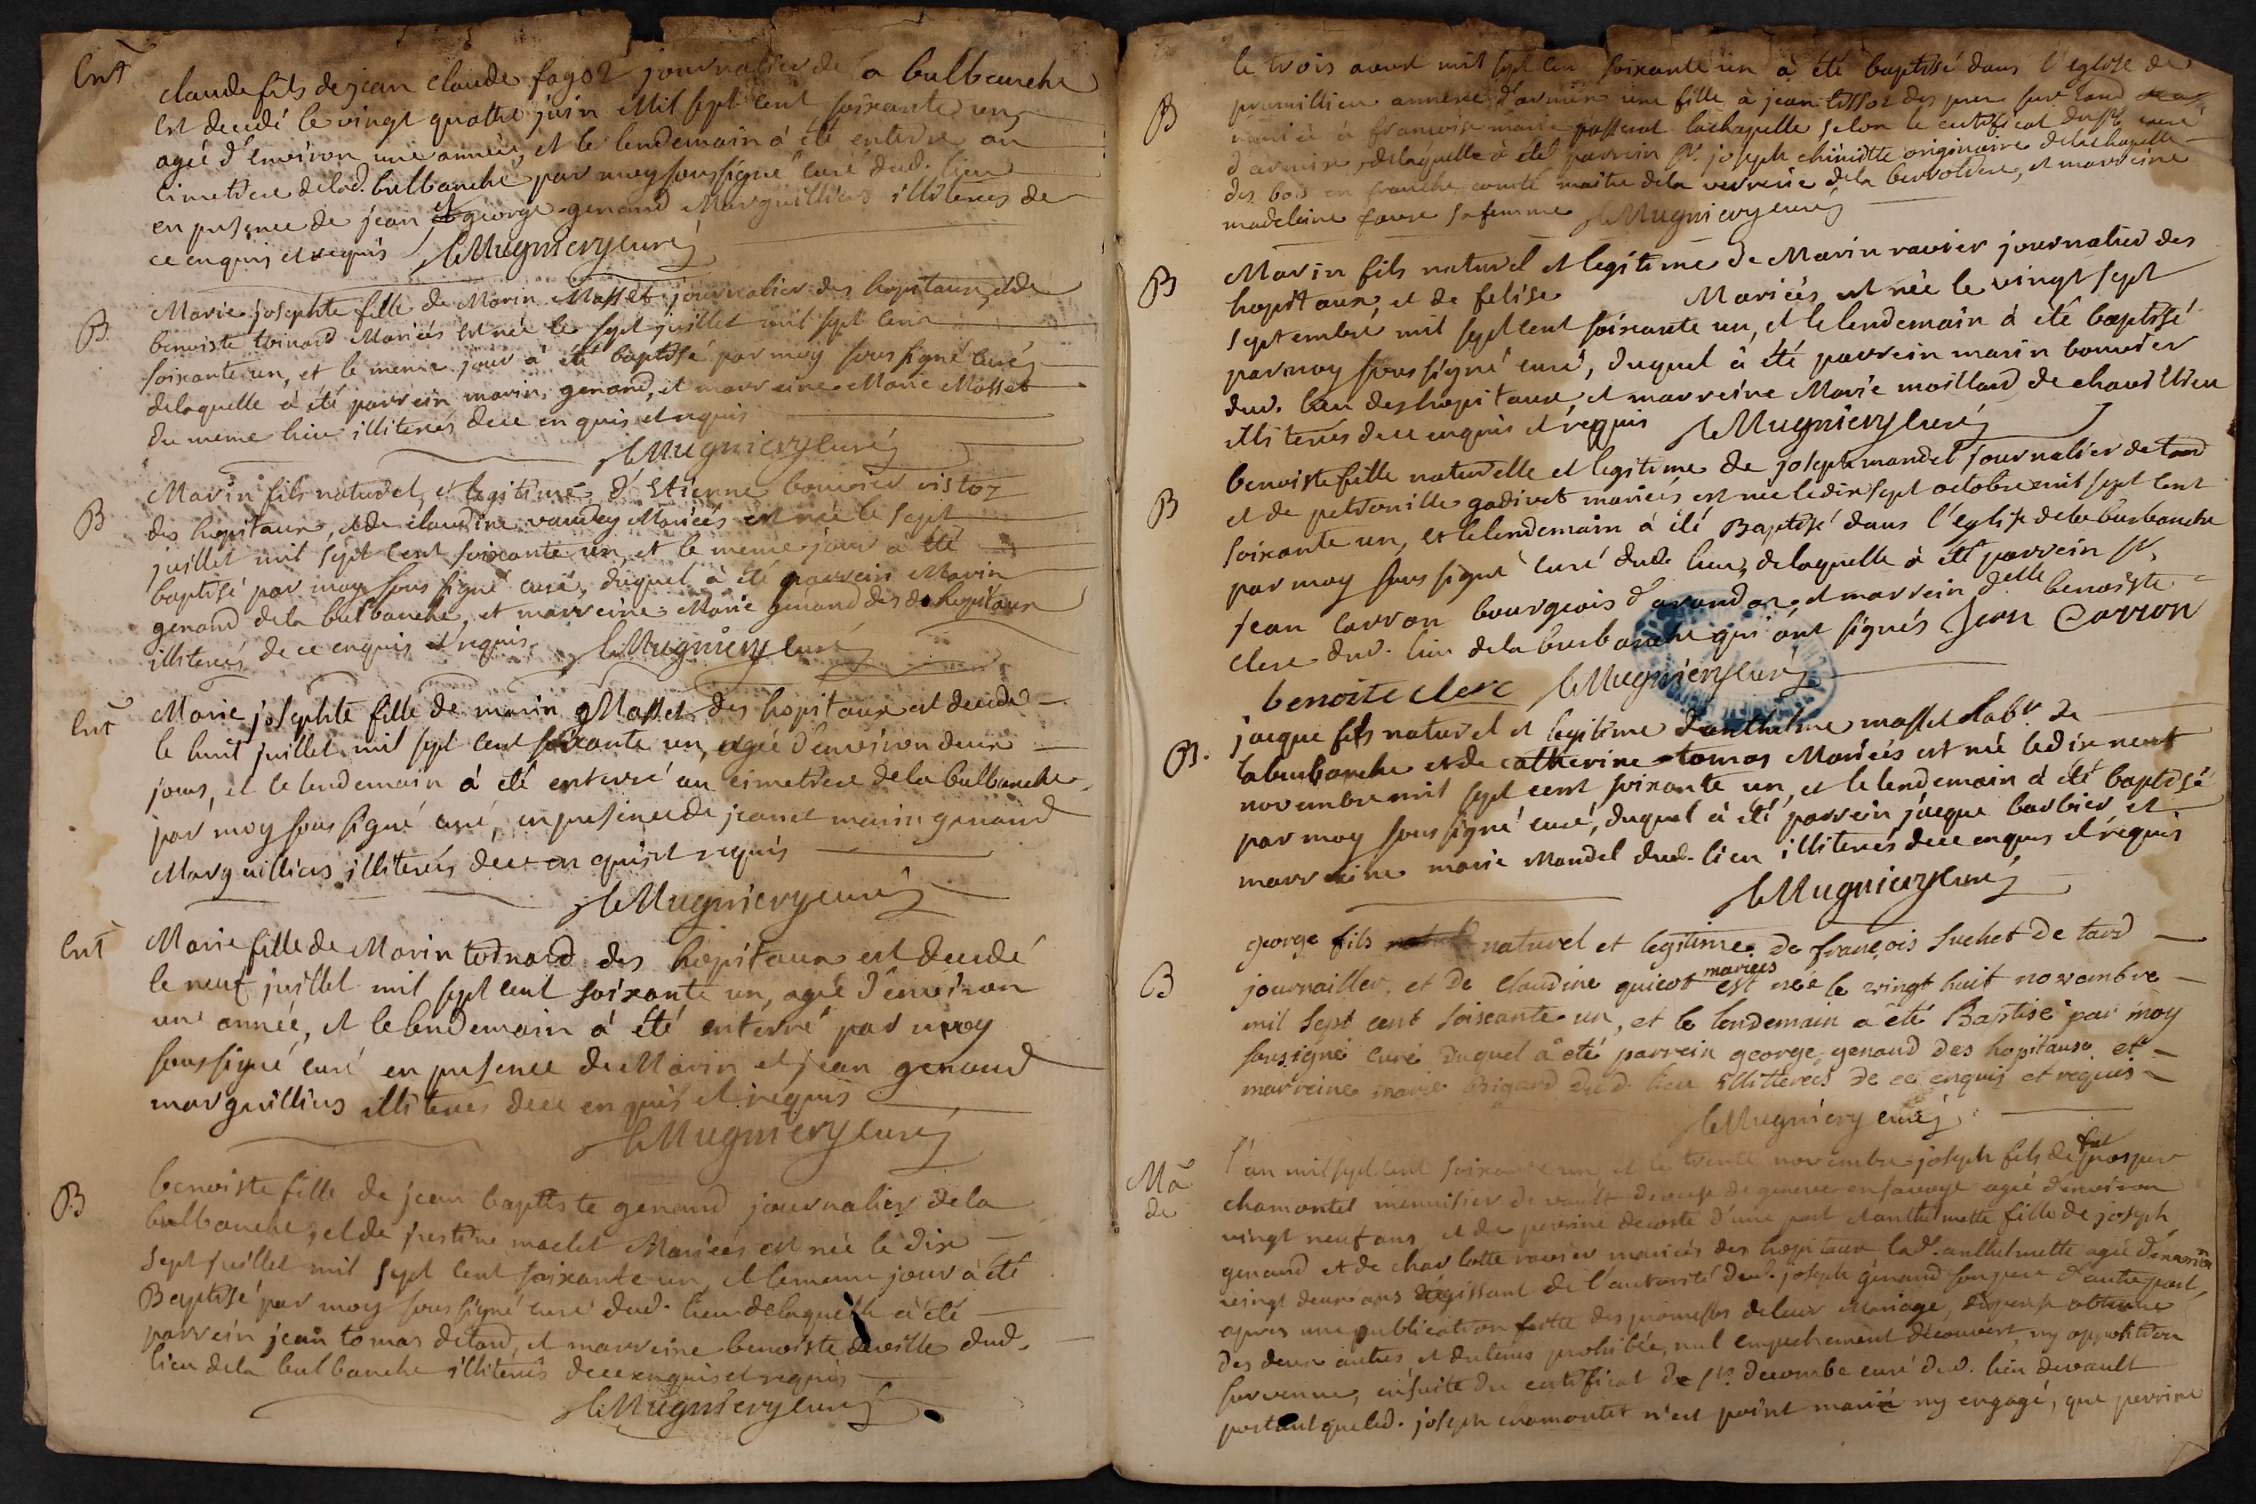 Ent
claude fils de jean claude fagot journalier de la bulbanche
est decedé le vingt quattre juin Mil sept cent soixante un,
agée d'environ une année, et le lendemain à été enterre au
cimetiere delad. bulbanche par moy soussigné curé dud. lieu
en presence de jean et george genand Marguilliers illiterés de
ce enquis et requis Mugniery curé
B
Marie josephte fille de Marin Masset journalier des hopitaux, et de
benoiste toinard Mariés est née le sept juillet mil sept cent
soixante un, et le meme jour à été baptisé par moy sous signé curé
delaquelle à été parrein marin genand, et marreine Marie Masset
du meme lieu illiterés de ce enquis et requis
Mugniery curé
B
Marin fils naturel et legitime d'Etienne bouvier
des hopitaux, et de claudine vaudey Mariés est née le sept
juillet mil sept cent soixante un, et le meme jour a été
baptisé par moy sous signé curé, duquel à été parrein Marin
genand dela bulbanche, et marreine Marie genand des hopitaux
illiterés de ce enquis et requis. Mugniery curé
Ent
Marie josephte fille de marin Masset des hopitaux est decedé
le huit juillet mil sept cent soixante un, agée d'environ deux
jours, et le lendemain à été enterré au cimetiere dela bulbanche
par moy sous signé curé, en presence de jean et marin genand
Marguilliers illiterés de ce enquis et requis
Mugniery curé
Ent
Marie fille de Marin toinard des hopitaux est decedé
le neuf juillet mil sept cent soixante un, agée d'environ
une année, et le lendemain à été enterré par moy
soussigné curé en presence de Marin et jean genand
marguilliers illiterés de ce enquis et requis
Mugniery curé
B
benoiste fille de jean baptiste genand journalier de la
bulbanche, et de justine maclet Mariés est née le dix
sept juillet mil sept cent soixante un, et le meme jour à été
Baptisé par moy sous signé curé dud. lieu delaquelle à été
parrein jean tomas de tard, et marreine benoiste deville dud.
lieu dela bulbanche illiterés de ce enquis et requis
Mugniery curé
le trois aoust mil sept cen soixante un à été baptisé dans l'eglise de
B
premillieu annexe d'armix une fille à jean tissot des
mariée à françoise marie passerat lachapelle selon le certificat du sr. curé
d'armix, delaquelle à été parrein sr. joseph originaire delachapelle
des bois en franche comté maitre dela verrerie dela, et marreine
madeleine favre sa femme Mugniery curé
B
Marin fils naturel et legitime de Marin ravier journalier des
hopitaux, et de felise Mariés est née le vingt sept
septembre mil sept cent soixante un, et le lendemain à été baptisé
par moy sous signé curé, duquel à été parrein marin bouvier
dud. lieu des hopitaux et marreine Marie moillard de chavillieu
illiterés de ce enquis et requis Mugniery curé
B
benoiste fille naturelle et legitime de joseph mandet journalier de tard
et de petronille godivet mariés, est née le dix sept octobre mil sept cent
soixante un, et le lendemain à été Baptisé dans l'eglise dela burbanche
par moy sous signé curé dud. lieu, delaquelle à été parrein sr.
jean carron bourgeois d'arandas, et marrein delle benoiste
clerc dud. lieu dela burbanche qui ont signés Jean Carron
benoite clerc Mugniery curé
B.
jacque fils naturel et legitime d'anthelme masset labr. de
laburbanche et de catherine tomas Mariés est né le dix neuf
novembre mil sept cent soixante un, et le lendemain à été baptisé
par moy sous signé curé, duquel à été parrein jacque barbier et
marreine marie Mandet dud. lieu illiterés de ce enquis et requis
Mugniery curé
B
george fils naturel et legitime de françois suchet de tard
journailler, et de claudine quicot mariées est née le vingt huit novembre
mil sept cent soixante un, et le lendemain a été Baptisé par moy
sousigné curé duquel a eté parrein george genand des hopitaux et
marreine marie Brigand dud. lieu illiterés de ce enquis et requis
Mugniery curé
Ma
de
l'an mil sept cent soixante un et le trente novembre joseph fils de feu prosper
chamontet menuisier de vault diocese de geneve en savoye agé d'environ
vingt neuf ans et de perrine decoste d'une part et anthelmette fille de joseph
genand et de charlotte ravier mariés des hopitaux lad. anthelmette agée d'environ
vingt deux ans agissant de l'autorité dud. joseph genand son pere d'autre part,
apres une publication faitte des promesses de leur Mariage, dispense obtenue
des deux autres, et du tems prohibée, nul empechement découvert, ny opposition
survenue, ensuite du certificat de sr. decombe curé dud. lieu de vault
portant queled. joseph chamontet n'est point marié ny engagé, que perrine